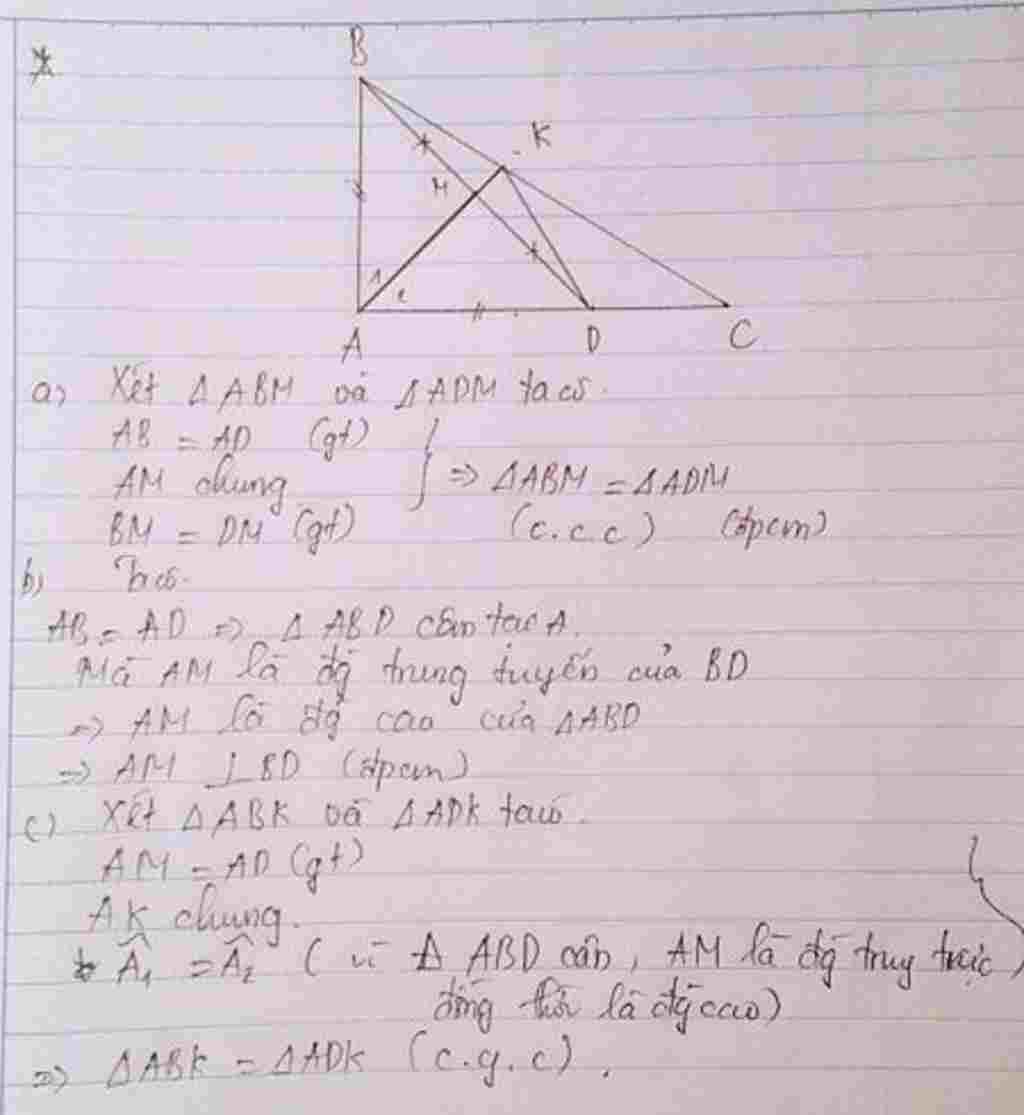 B
K
M
1
2
A D C
a) Xét Δ ABM và Δ ADM ta có.
AB = AD (gt)
AM chung } => ΔABM = ΔADM
BM = DM (gt) (c.c.c) (đpcm)
b) Ta có.
AB = AD => Δ ABD cân tại A.
Mà AM là đg trung tuyến của BD
=> AM là đg cao của ΔABD
=> AM ⊥ BD (đpcm)
c) Xét ΔABK và ΔADK ta có.
AM = AD (gt)
AK chung.
Â1 = Â2 ( vì Δ ABD cân, AM là đg trung trực
đồng thời là đg cao)
=> ΔABK = ΔADK (c.g.c).